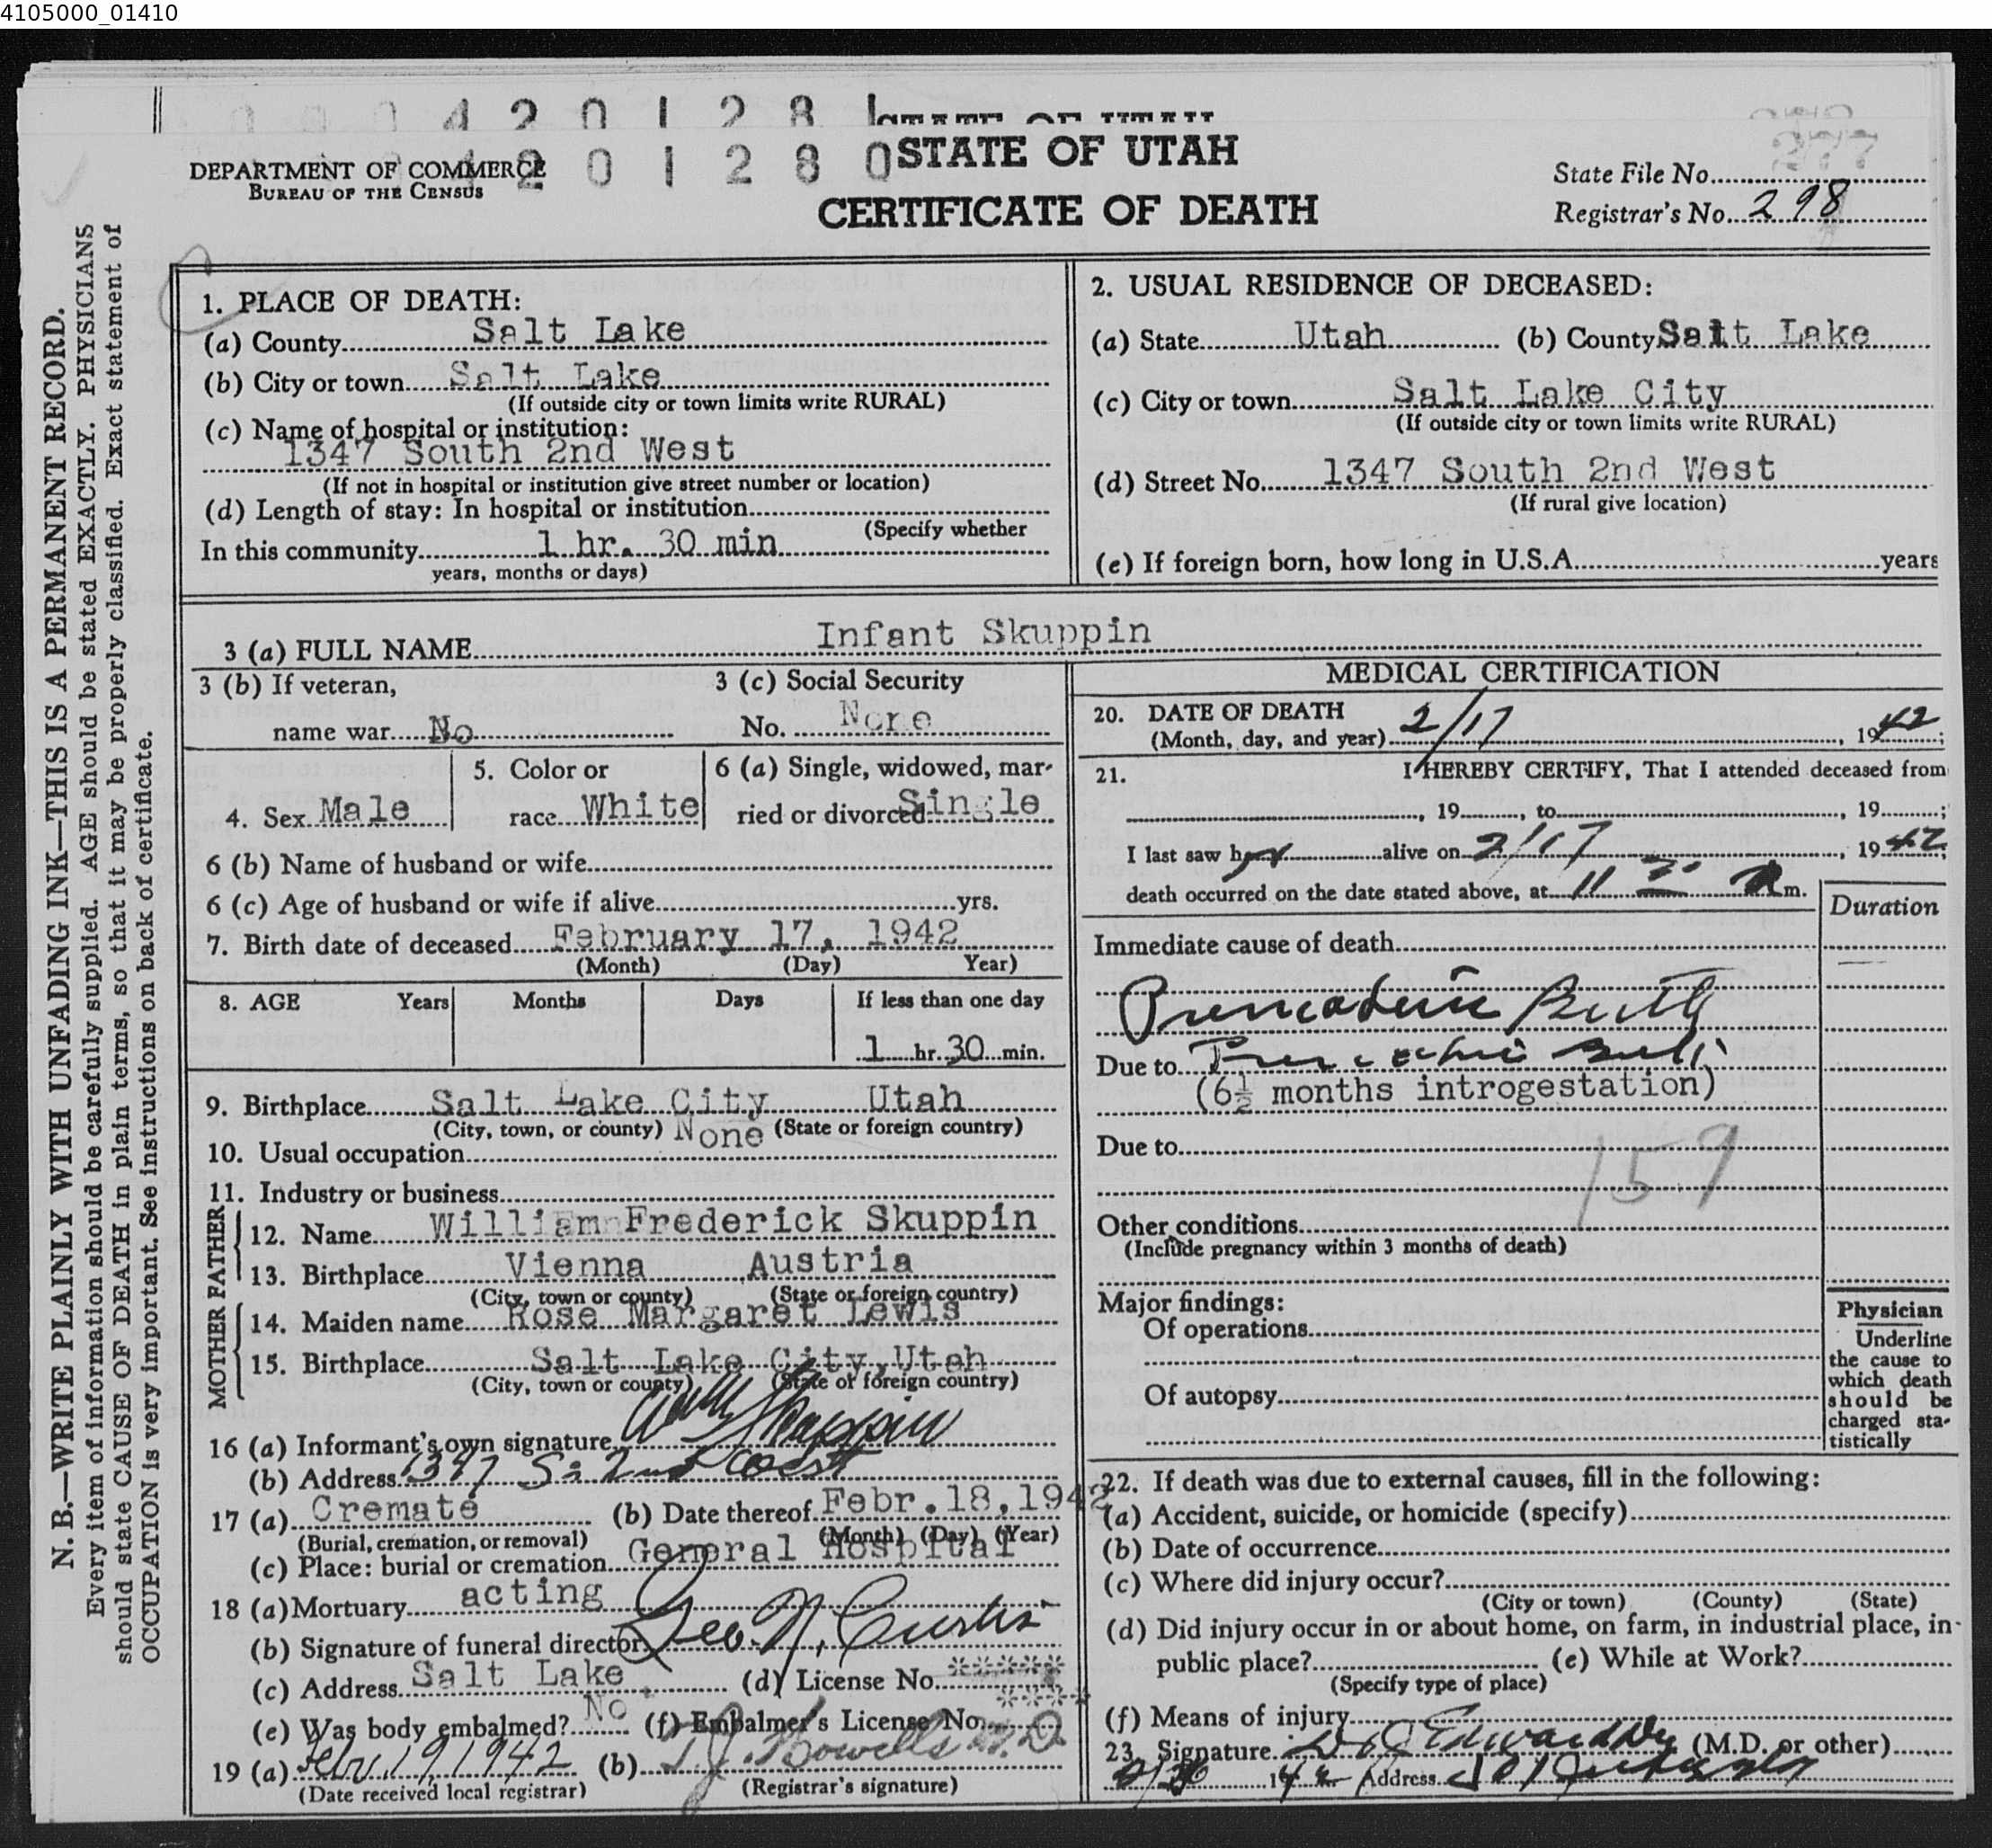 4105000_01410
4 2 0 1 2 8
4 2 0 1 2 8 0
STATE OF UTAH
DEPARTMENT OF COMMERCE
BUREAU OF THE CENSUS
CERTIFICATE OF DEATH
State File No.
377
Registrar's No. 298
N. B.—WRITE PLAINLY WITH UNFADING INK—THIS IS A PERMANENT RECORD.
Every item of information should be carefully supplied. AGE should be stated EXACTLY. PHYSICIANS
should state CAUSE OF DEATH in plain terms, so that it may be properly classified. Exact statement of
OCCUPATION is very important. See instructions on back of certificate.
1. PLACE OF DEATH:
(a) County Salt Lake
(b) City or town Salt Lake
(If outside city or town limits write RURAL)
(c) Name of hospital or institution:
1347 South 2nd West
(If not in hospital or institution give street number or location)
(d) Length of stay: In hospital or institution
(Specify whether
In this community 1 hr. 30 min
years, months or days)
2. USUAL RESIDENCE OF DECEASED:
(a) State Utah (b) County Salt Lake
(c) City or town Salt Lake City
(If outside city or town limits write RURAL)
(d) Street No. 1347 South 2nd West
(If rural give location)
(e) If foreign born, how long in U.S.A. years
3 (a) FULL NAME Infant Skuppin
3 (b) If veteran, 3 (c) Social Security
name war No No. None
4. Sex Male 5. Color or race White 6 (a) Single, widowed, mar-
ried or divorced Single
6 (b) Name of husband or wife
6 (c) Age of husband or wife if alive yrs.
7. Birth date of deceased February 17, 1942
(Month) (Day) Year)
8. AGE Years Months Days If less than one day
1 hr. 30 min.
9. Birthplace Salt Lake City Utah
(City, town, or county) (State or foreign country)
10. Usual occupation None
11. Industry or business
FATHER
12. Name William Frederick Skuppin
13. Birthplace Vienna Austria
(City, town or county) (State or foreign country)
MOTHER
14. Maiden name Rose Margaret Lewis
15. Birthplace Salt Lake City, Utah
(City, town or county) (State or foreign country)
16 (a) Informant's own signature Skuppin
(b) Address 1347 So 2nd West
17 (a) Cremate (b) Date thereof Febr. 18, 1942
(Burial, cremation, or removal) (Month) (Day) (Year)
(c) Place: burial or cremation General Hospital
18 (a) Mortuary acting
(b) Signature of funeral director Geo. N. Curtis
(c) Address Salt Lake (d) License No. *****
(e) Was body embalmed? No. (f) Embalmer's License No. ****
19 (a) Feb. 19, 1942 (b) T. J. Howells M.D.
(Date received local registrar) (Registrar's signature)
MEDICAL CERTIFICATION
20. DATE OF DEATH
(Month, day, and year) 2/17, 1942;
21. I HEREBY CERTIFY, That I attended deceased from
, 19 , to , 19 ;
I last saw h alive on 2/17, 1942;
death occurred on the date stated above, at 11 m.
Duration
Immediate cause of death
Premature Birth
Due to Premature Birth
(6½ months introgestation)
Due to
159
Other conditions
(Include pregnancy within 3 months of death)
Major findings:
Of operations
Of autopsy
Physician
Underline
the cause to
which death
should be
charged sta-
tistically
22. If death was due to external causes, fill in the following:
(a) Accident, suicide, or homicide (specify)
(b) Date of occurrence
(c) Where did injury occur?
(City or town) (County) (State)
(d) Did injury occur in or about home, on farm, in industrial place, in
public place? (e) While at Work?
(Specify type of place)
(f) Means of injury
23. Signature (M.D. or other)
1942 Address